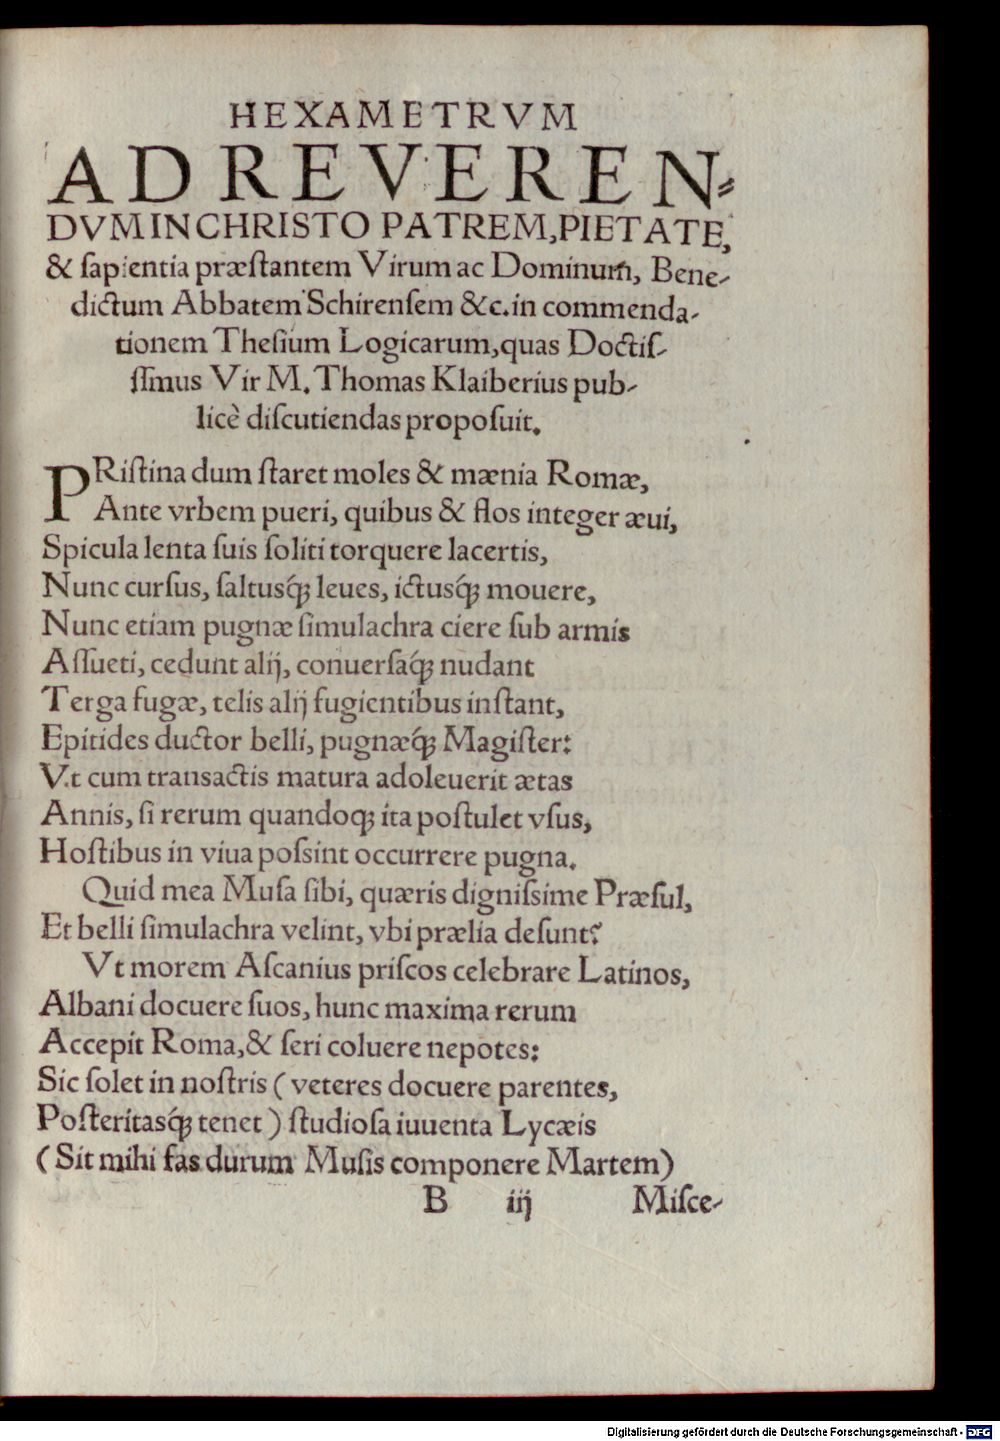 HEXAMETRVM
AD REVEREN⸗
DVM IN CHRISTO PATREM, PIETATE,
& ſapientia præſtantem Virum ac Dominum̃, Bene⸗
dictum Abbatem Schirenſem &c. in commenda⸗
tionem Theſium Logicarum, quas Doctiſ⸗
ſſimus Vir M. Thomas Klaiberius pub⸗
licè diſcutiendas propoſuit.
PRiſtina dum ſtaret moles & mænia Romæ,
Ante vrbem pueri, quibus & flos integer æui,
Spicula lenta ſuis ſoliti torquere lacertis,
Nunc curſus, ſaltusq́; leues, ictusq́; mouere,
Nunc etiam pugnæ ſimulachra ciere ſub armis
Aſſueti, cedunt alij, conuerſaq́; nudant
Terga fugæ, telis alij fugientibus inſtant,
Epitides ductor belli, pugnæq́; Magiſter:
Vt cum transactis matura adoleuerit ætas
Annis, ſi rerum quandoq; ita poſtulet vſus,
Hoſtibus in viua poſsint occurrere pugna.
Quid mea Muſa ſibi, quæris digniſsime Præſul,
Et belli ſimulachra velint, vbi prælia deſunt?
Vt morem Aſcanius priſcos celebrare Latinos,
Albani docuere ſuos, hunc maxima rerum
Accepit Roma, & ſeri coluere nepotes:
Sic ſolet in noſtris (veteres docuere parentes,
Poſteritasq́; tenet) ſtudioſa iuuenta Lycæis
(Sit mihi fas durum Muſis componere Martem)
B iij Miſce⸗
Digitalisierung gefördert durch die Deutsche Forschungsgemeinschaft - DFG